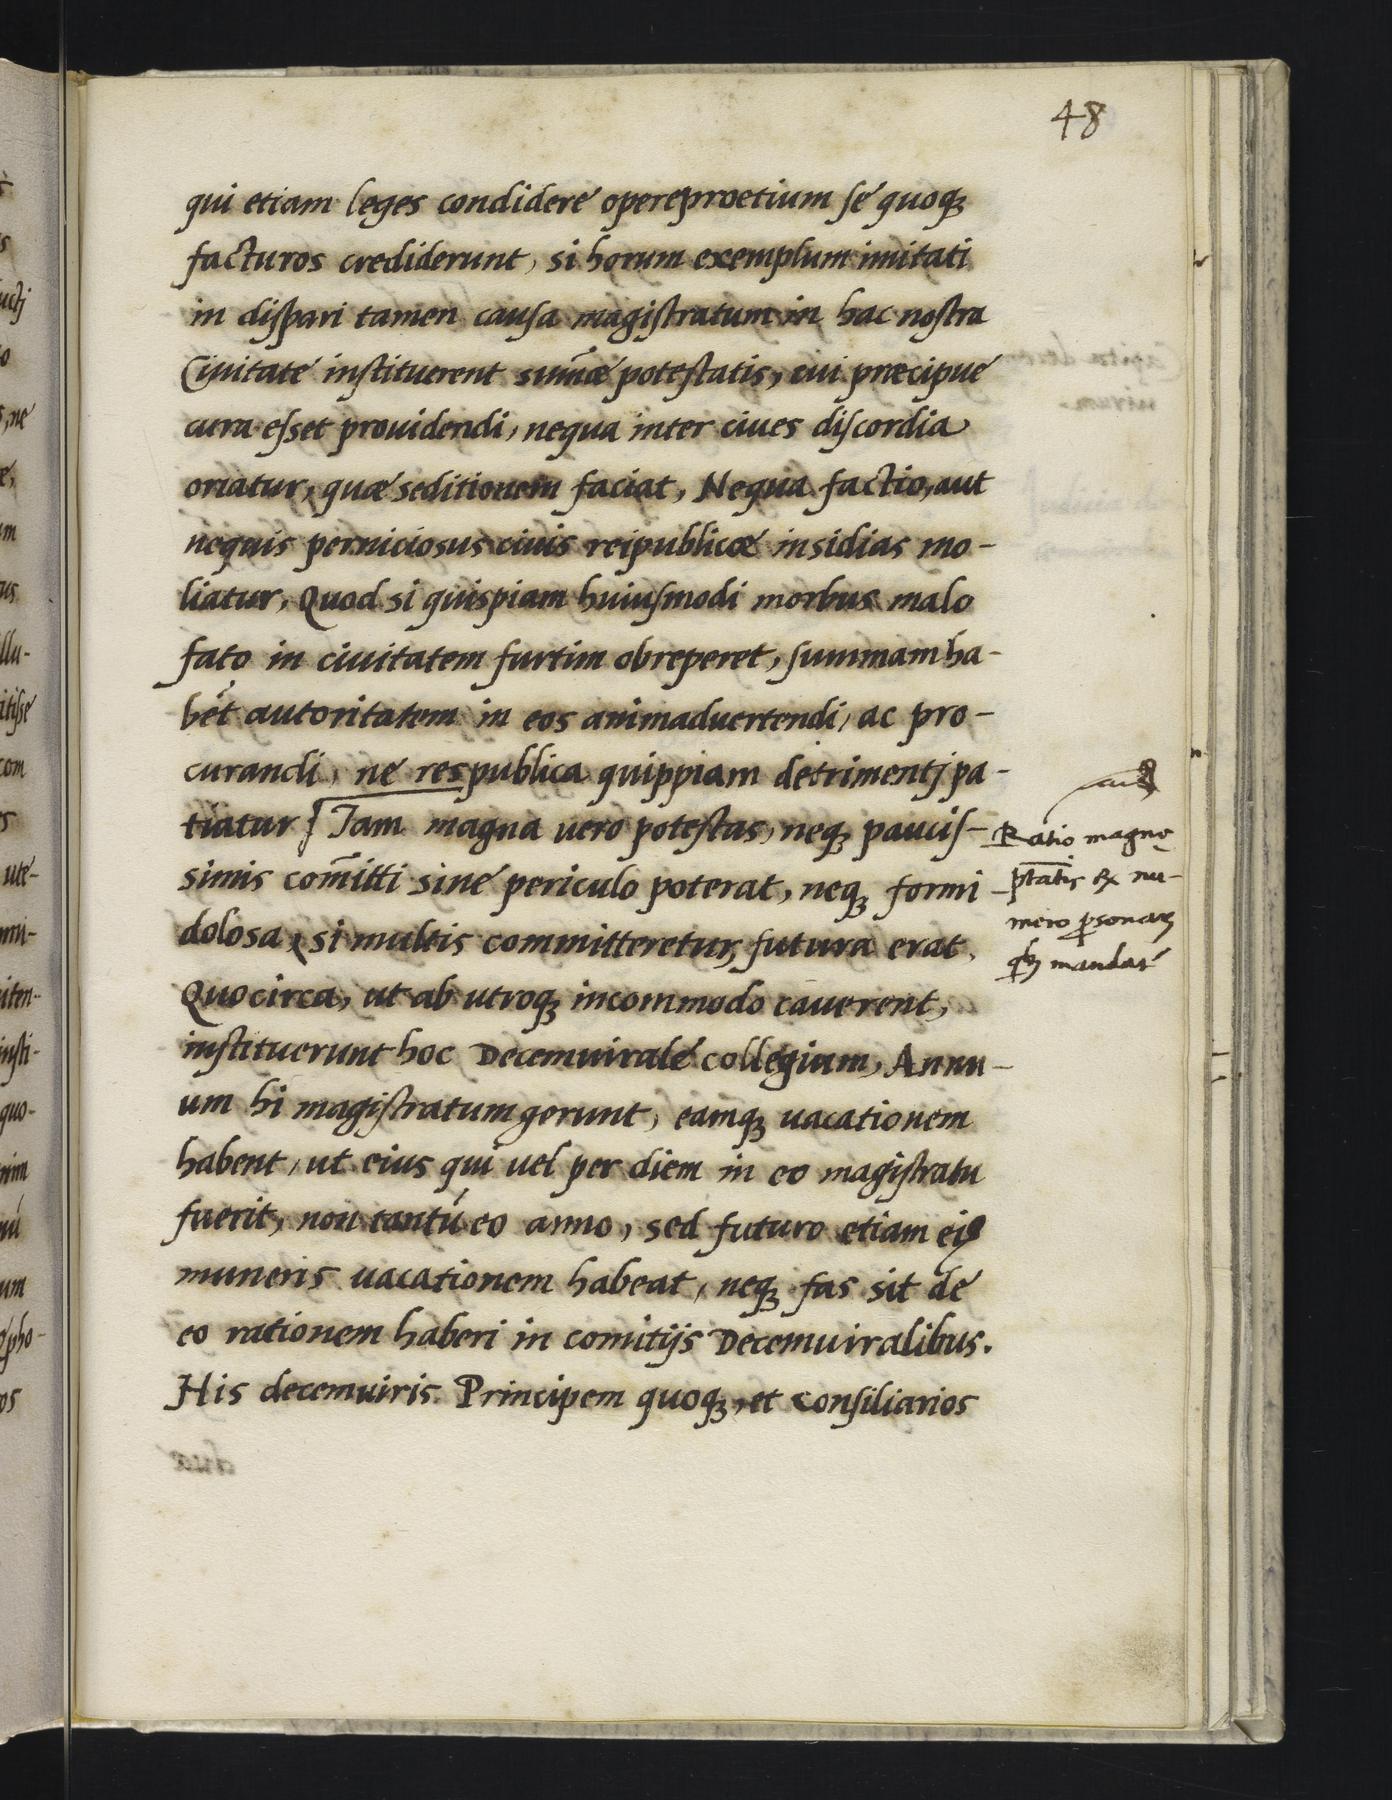 48
qui etiam leges condidere operęproetium se quoqꝫ
facturos crediderunt, si horum exemplum imitati
in dispari tamen causa magistratum in hac nostra
Ciuitate instituerent sum̄æ potestatis, cui præcipue
cura esset prouidendi, nequa inter ciues discordia
oriatur, quæ seditionem faciat, Nequa factio, aut
nequis perniciosus ciuis reipublicæ insidias mo-
liatur, Quod si quispiam huiusmodi morbus malo
fato in ciuitatem furtim obreperet, summam ha-
bet autoritatem in eos animaduertendi, ac pro-
curandi, ne respublica quippiam detrimentj pa-
tiatur Iam magna uero potestas, neqꝫ paucis-
simis com̄itti sine periculo poterat, neqꝫ formi
dolosa, si multis committeretur, futura erat,
Quocirca, ut ab utroqꝫ incommodo cauerent,
instituerunt hoc Decemuirale collegium, Annu-
um hi magistratum gerunt, eamqꝫ uacationem
habent, ut eius qui uel per diem in eo magistratu
fuerit, non tantú eo anno, sed futuro etiam eiꝰ
muneris uacationem habeat, neqꝫ fas sit de
eo rationem haberi in comitijs Decemuiralibus.
His decemuiris Principem quoqꝫ, et Consiliarios
Ratio magnę
ptātis ex nu-
mero ꝑsonaꝝ
qbꝫ mandat́